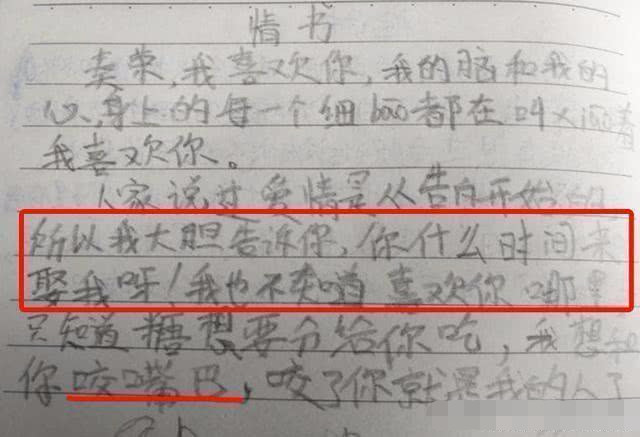 情书
卖荣,我喜欢你,我的脑和我的
心,身上的每一个细bao都在叫xiao着
我喜欢你。
人家说过爱情是从告白开始的
所以我大胆告诉你,你什么时间来
娶我呀!我也不知道喜欢你哪里
只知道糖想要分给你吃,我想和
你咬嘴巴,咬了你就是我的人了